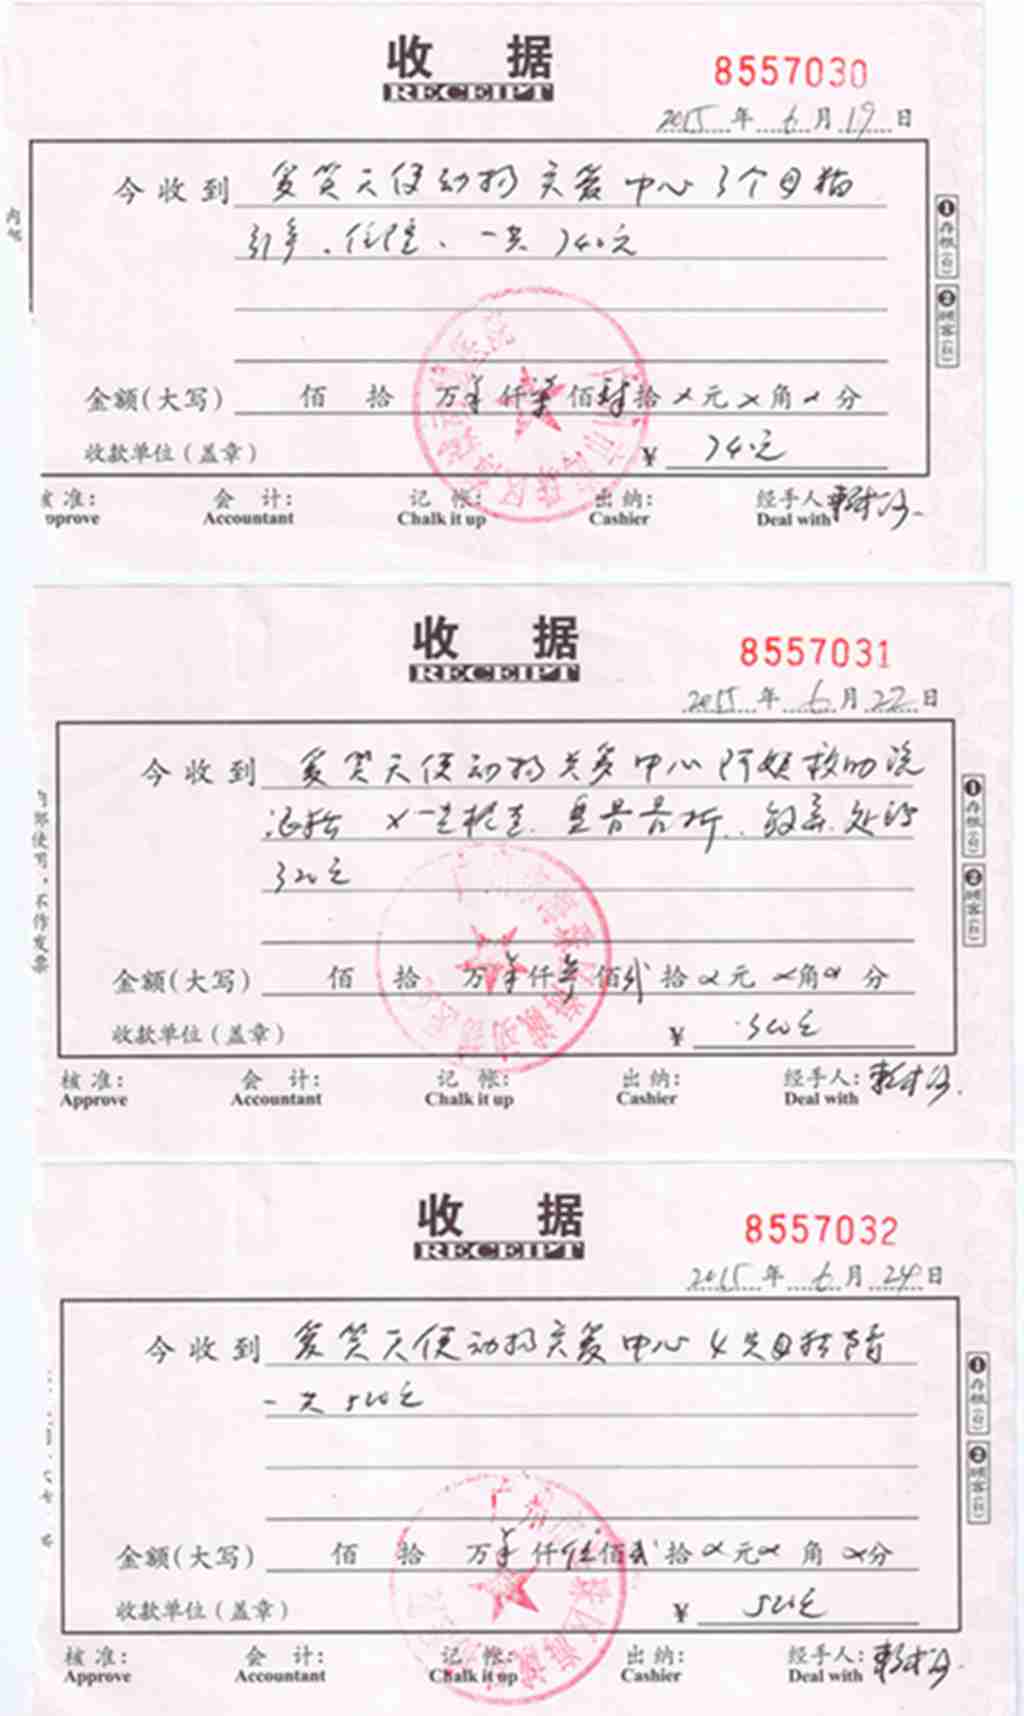 收 据
RECEIPT
8557030
2015 年 6 月 19 日
今收到 爱笑天使动物关爱中心 3个母猫
住院、一共 740元
金额(大写) 佰 拾 万 仟 柒 佰 肆 拾 元 角 分
收款单位(盖章) ¥ 740元
核准: 会 计: 记 帐: 出 纳: 经手人
pprove Accountant Chalk it up Cashier Deal with
❶存根(白) ❷顾客(红)
收 据
RECEIPT
8557031
2015 年 6 月 22 日
今收到 爱笑天使动物关爱中心 救助流
浪猫 X 一 检查. 处理
320元
金额(大写) 佰 拾 万 仟 叁 佰 贰 拾 元 角 分
收款单位(盖章) ¥ 320元
核准: 会 计: 记 帐: 出 纳: 经手人:
Approve Accountant Chalk it up Cashier Deal with
❶存根(白) ❷顾客(红)
使用,不作发票
收 据
RECEIPT
8557032
2015 年 6 月 24 日
今收到 爱笑天使动物关爱中心 4只母猫
一共 520元
金额(大写) 佰 拾 万 仟 伍 佰 贰 拾 元 角 分
收款单位(盖章) ¥ 520元
核准: 会 计: 记 帐: 出 纳: 经手人:
Approve Accountant Chalk it up Cashier Deal with
❶存根(白) ❷顾客(红)